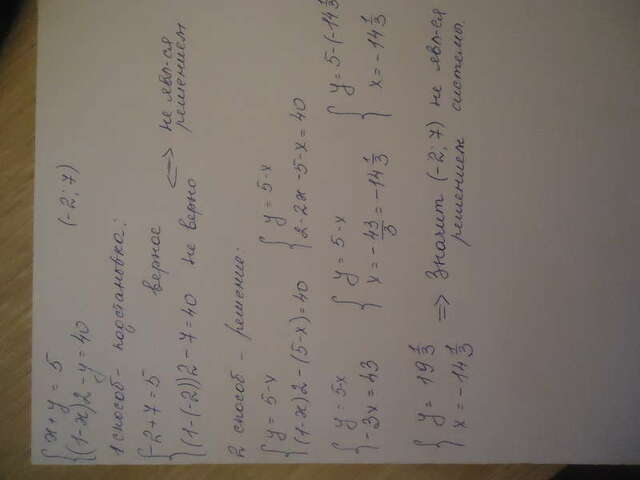 { x + y = 5
{ (1-x)2 - y = 40 (-2; 7)
1 способ - подстановка:
{ -2 + 7 = 5 верное
{ (1-(-2))2 - 7 = 40 не верно <=> не явл-ся решением
2 способ - решение:
{ y = 5-x { y = 5-x
{ (1-x)2 - (5-x) = 40 { 2-2x-5-x = 40
{ y = 5-x { y = 5-x { y = 5-(-14 1/3
{ -3x = 43 { x = -43/3 = -14 1/3 { x = -14 1/3
{ y = 19 1/3
{ x = -14 1/3 => Значит (-2; 7) не явл-ся
решением системы.